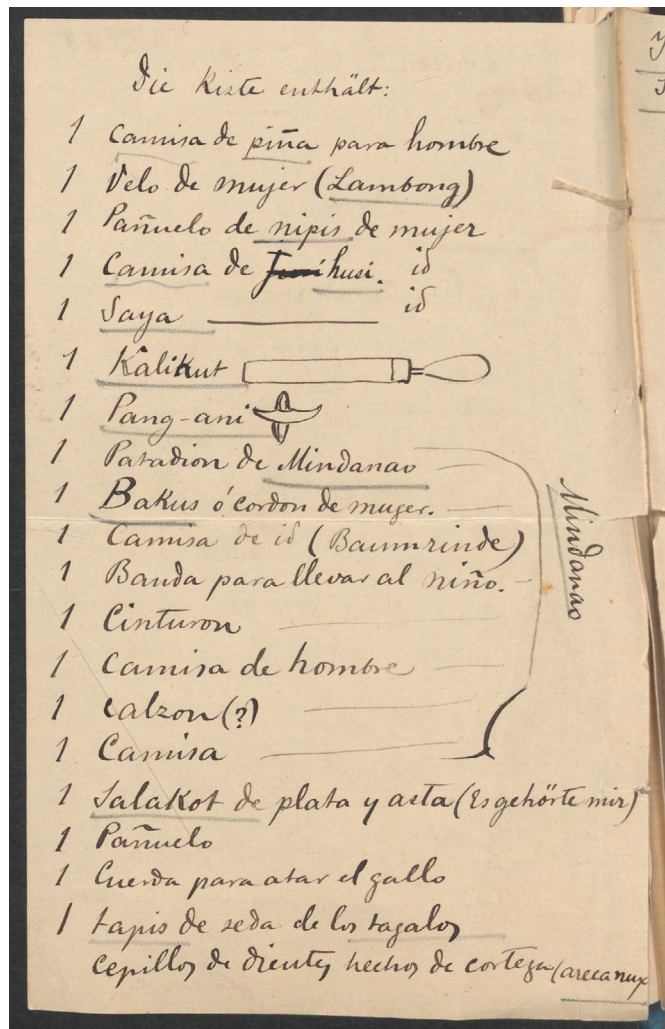 Die Kiste enthält:
1 Camisa de piña para hombre
1 Velo de mujer (Lambong)
1 Pañuelo de nipis de mujer
1 Camisa de husi. id
1 Saya id
1 Kalikut
1 Pang-ani
1 Patadion de Mindanao
1 Bakus ó cordon de muger.
1 Camisa de id (Baumrinde)
1 Banda para llevar al niño.
1 Cinturon
1 Camisa de hombre
1 Calzon (?)
1 Camisa
Mindanao
1 Salakot de plata y asta (Es gehörte mir)
1 Pañuelo
1 Cuerda para atar el gallo
1 tapis de seda de los tagalos
Cepillos de dientes hechos de corteza (arecanux